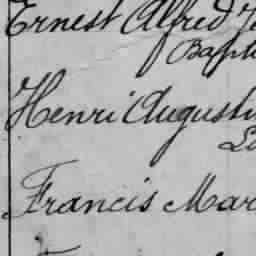 Ernest Alfred
Bapti
Henri Augustu
Francis Mar